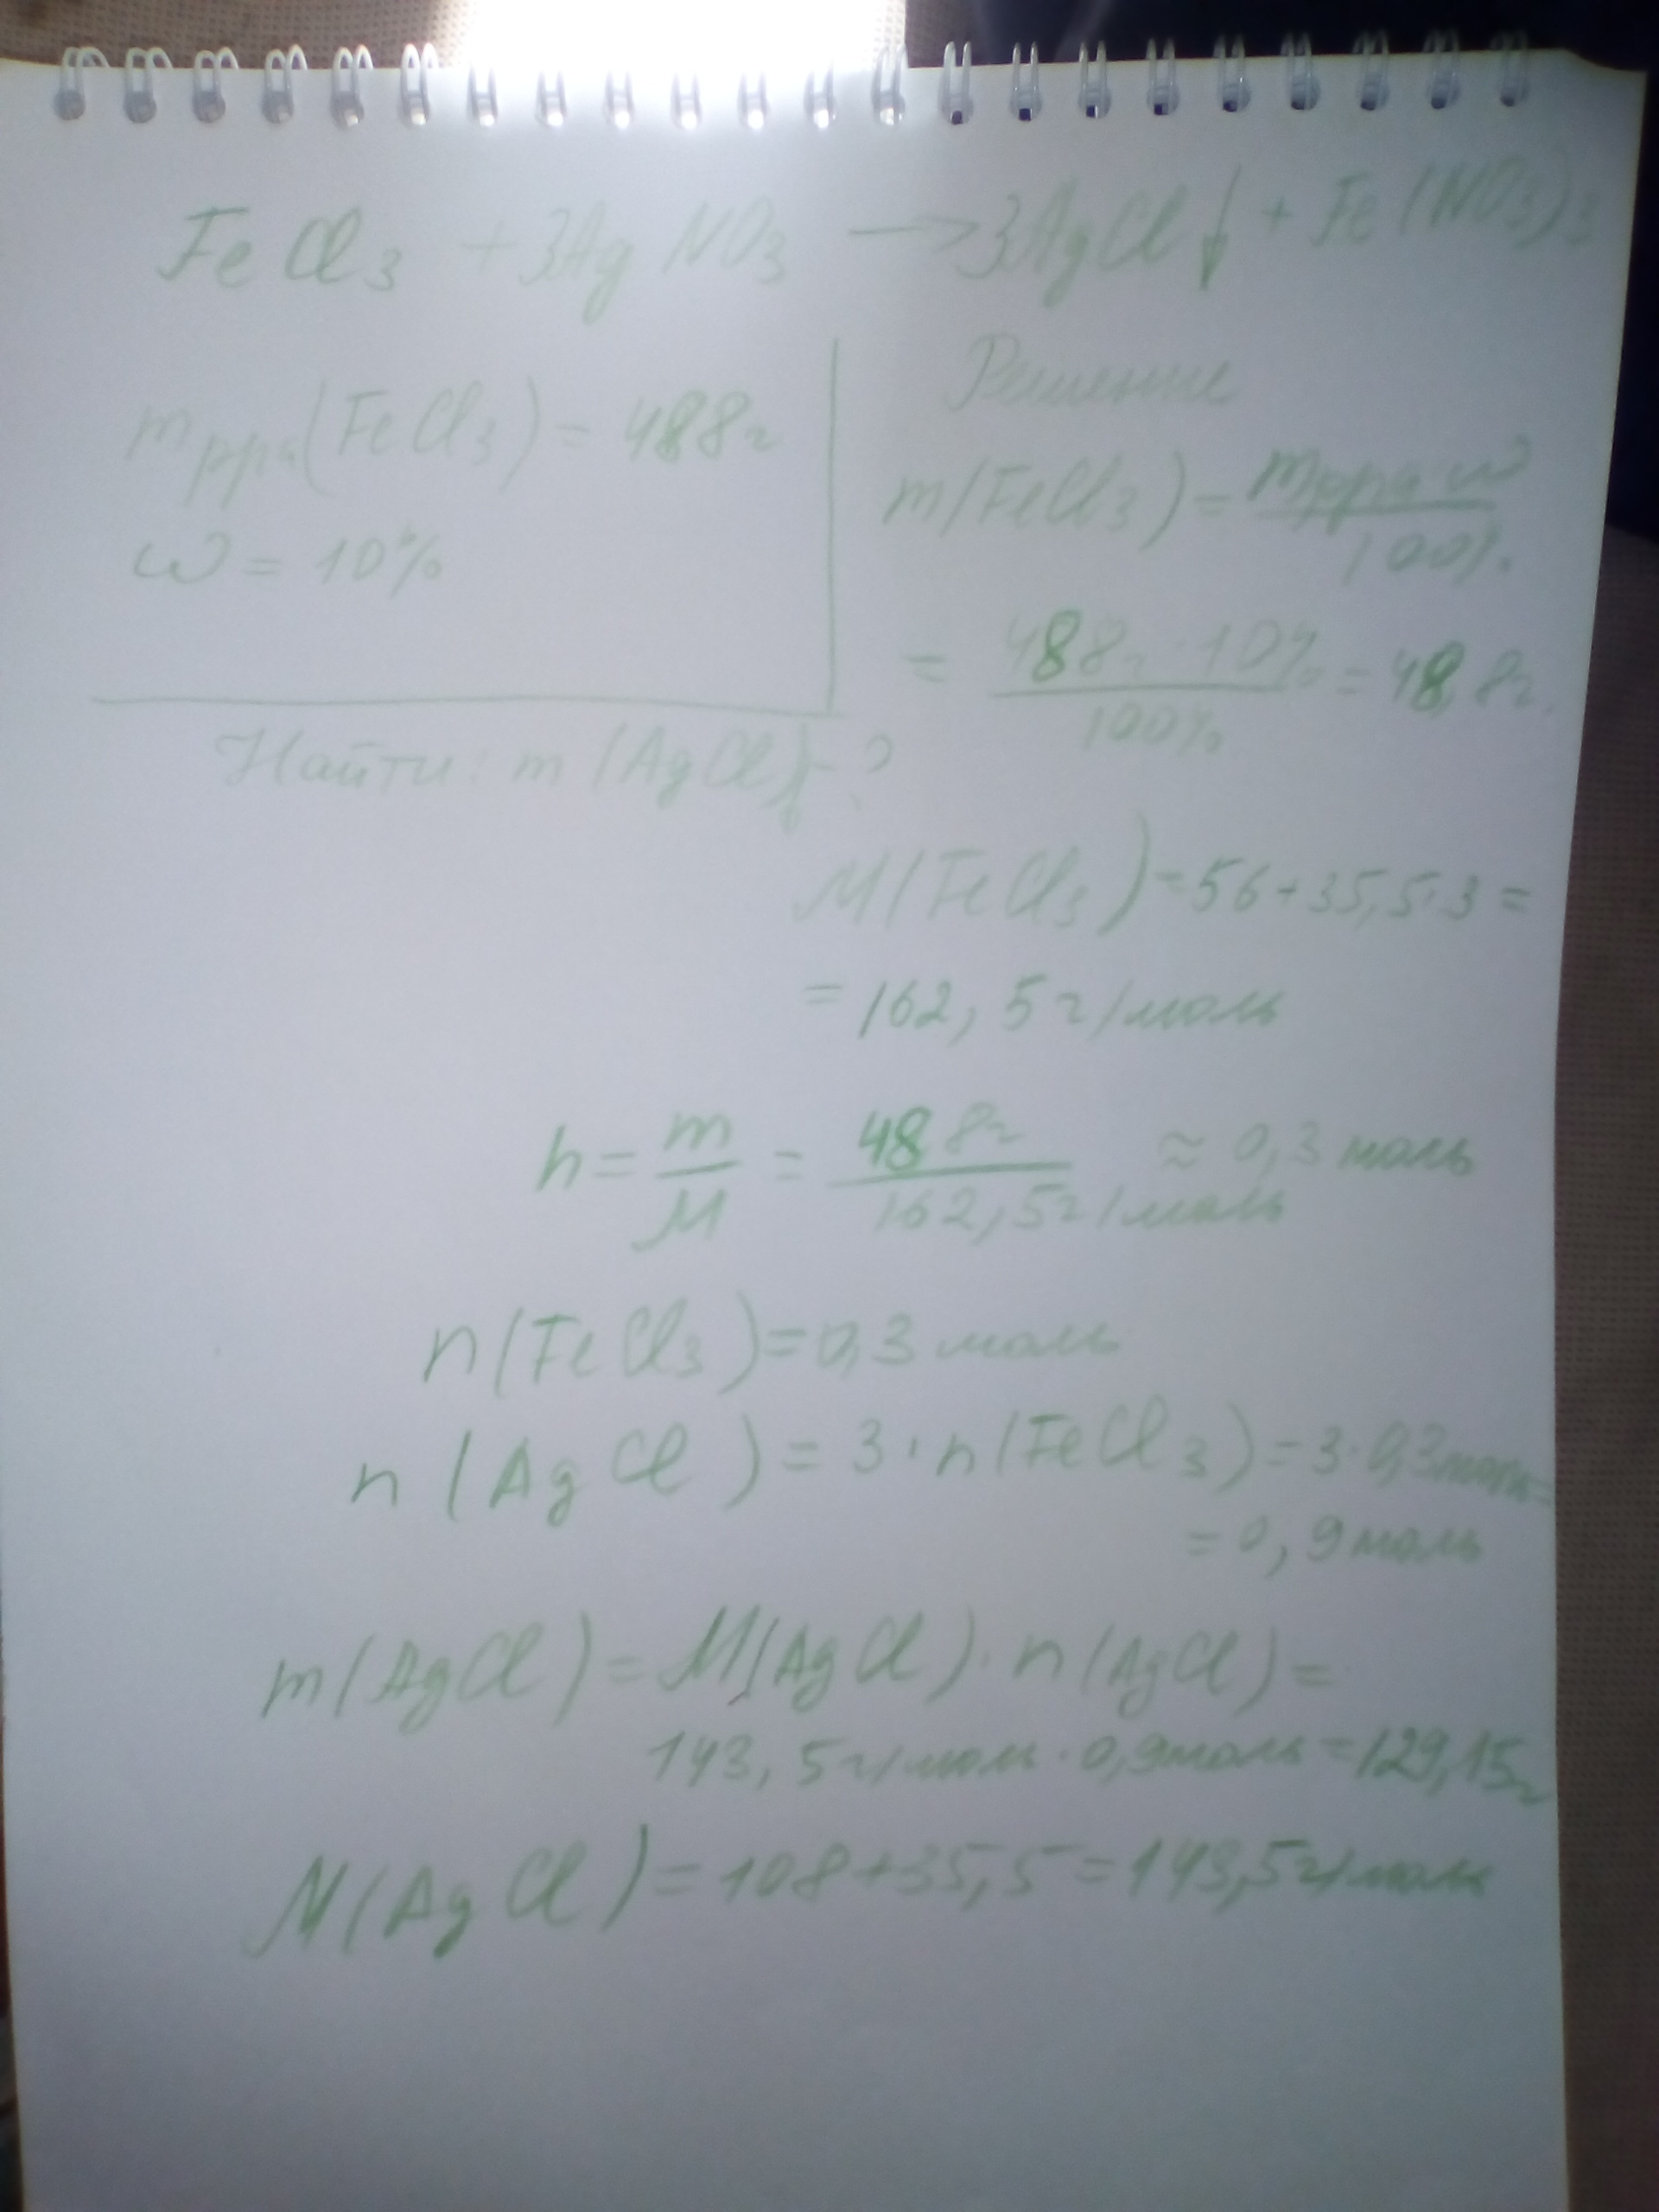 FeCl3 + 3AgNO3 → 3AgCl↓ + Fe(NO3)3
mрра(FeCl3) = 488г
ω = 10%
Найти: m(AgCl) - ?
Решение
m(FeCl3) = mрра·ω / 100%
= 488г · 10% / 100% = 48,8г.
M(FeCl3) = 56 + 35,5·3 =
= 162,5г/моль
n = m / M = 48,8г / 162,5г/моль ≈ 0,3 моль
n(FeCl3) = 0,3 моль
n(AgCl) = 3·n(FeCl3) = 3·0,3моль =
= 0,9моль
m(AgCl) = M(AgCl)·n(AgCl) =
143,5г/моль·0,9моль = 129,15г
M(AgCl) = 108 + 35,5 = 143,5г/моль